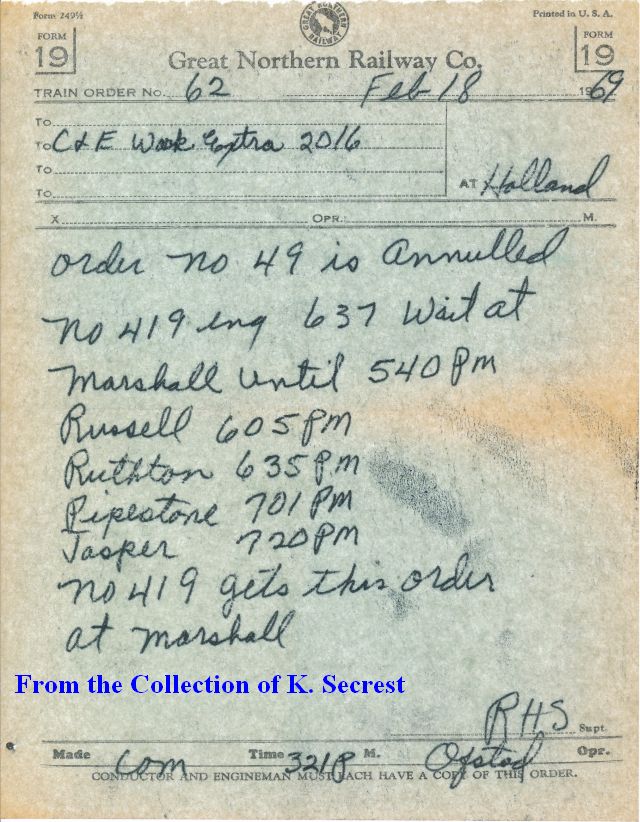 Form 249½ Printed in U. S. A.
GREAT NORTHERN RAILWAY
FORM 19 FORM 19
Great Northern Railway Co.
TRAIN ORDER NO. 62 Feb 18 1969
TO
TO C & E Work Extra 2016
TO
TO AT Holland
X OPR. M.
order no 49 is Annulled
no 419 eng 637 Wait at
Marshall until 540 PM
Russell 605 PM
Ruthton 635 PM
Pipestone 701 PM
Jasper 720 PM
no 419 gets this order
at Marshall
From the Collection of K. Secrest
RHS Supt.
Made Com Time 321 P M. Ofstad Opr.
CONDUCTOR AND ENGINEMAN MUST EACH HAVE A COPY OF THIS ORDER.